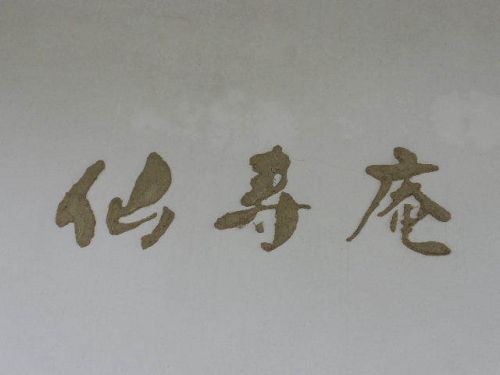 仙寿庵